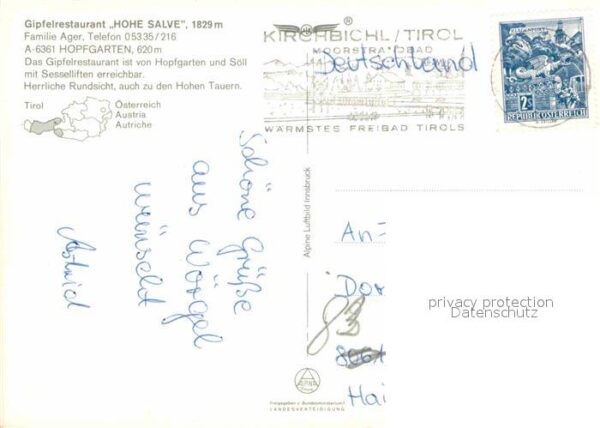 Gipfelrestaurant „HOHE SALVE", 1829 m
Familie Ager, Telefon 05335/216
A-6361 HOPFGARTEN, 620 m
Das Gipfelrestaurant ist von Hopfgarten und Söll
mit Sesselliften erreichbar.
Herrliche Rundsicht, auch zu den Hohen Tauern.
Tirol
Österreich
Austria
Autriche
KIRCHBICHL/TIROL
MOORSTRANDBAD
WÄRMSTES FREIBAD TIROLS
Deutschland
2S
REPUBLIK ÖSTERREICH
Schöne Grüße
aus Wörgl
wünscht
Astrid
Alpine Luftbild Innsbruck
An
Dor
83
Hai
privacy protection
Datenschutz
ALPINE
Freigegeben v. Bundesministerium f.
LANDESVERTEIDIGUNG